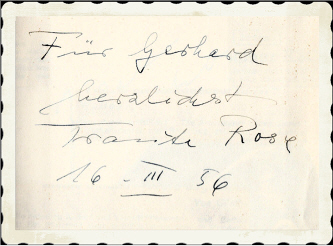 Für Gerhard
herzlichst
Traute Rose
16 - III 56